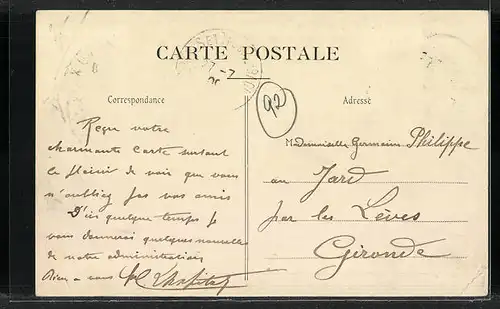 CARTE POSTALE
Correspondance
Adresse
92
Reçu votre
charmante carte surtout
le plaisir de voir que vous
n'oubliez pas vos amis
D'ici quelque temps je
vous donnerai quelques nouvelles
de notre administration
Bien a vous
Mademoiselle Germaine Philippe
au Jard
par les Lèves
Gironde